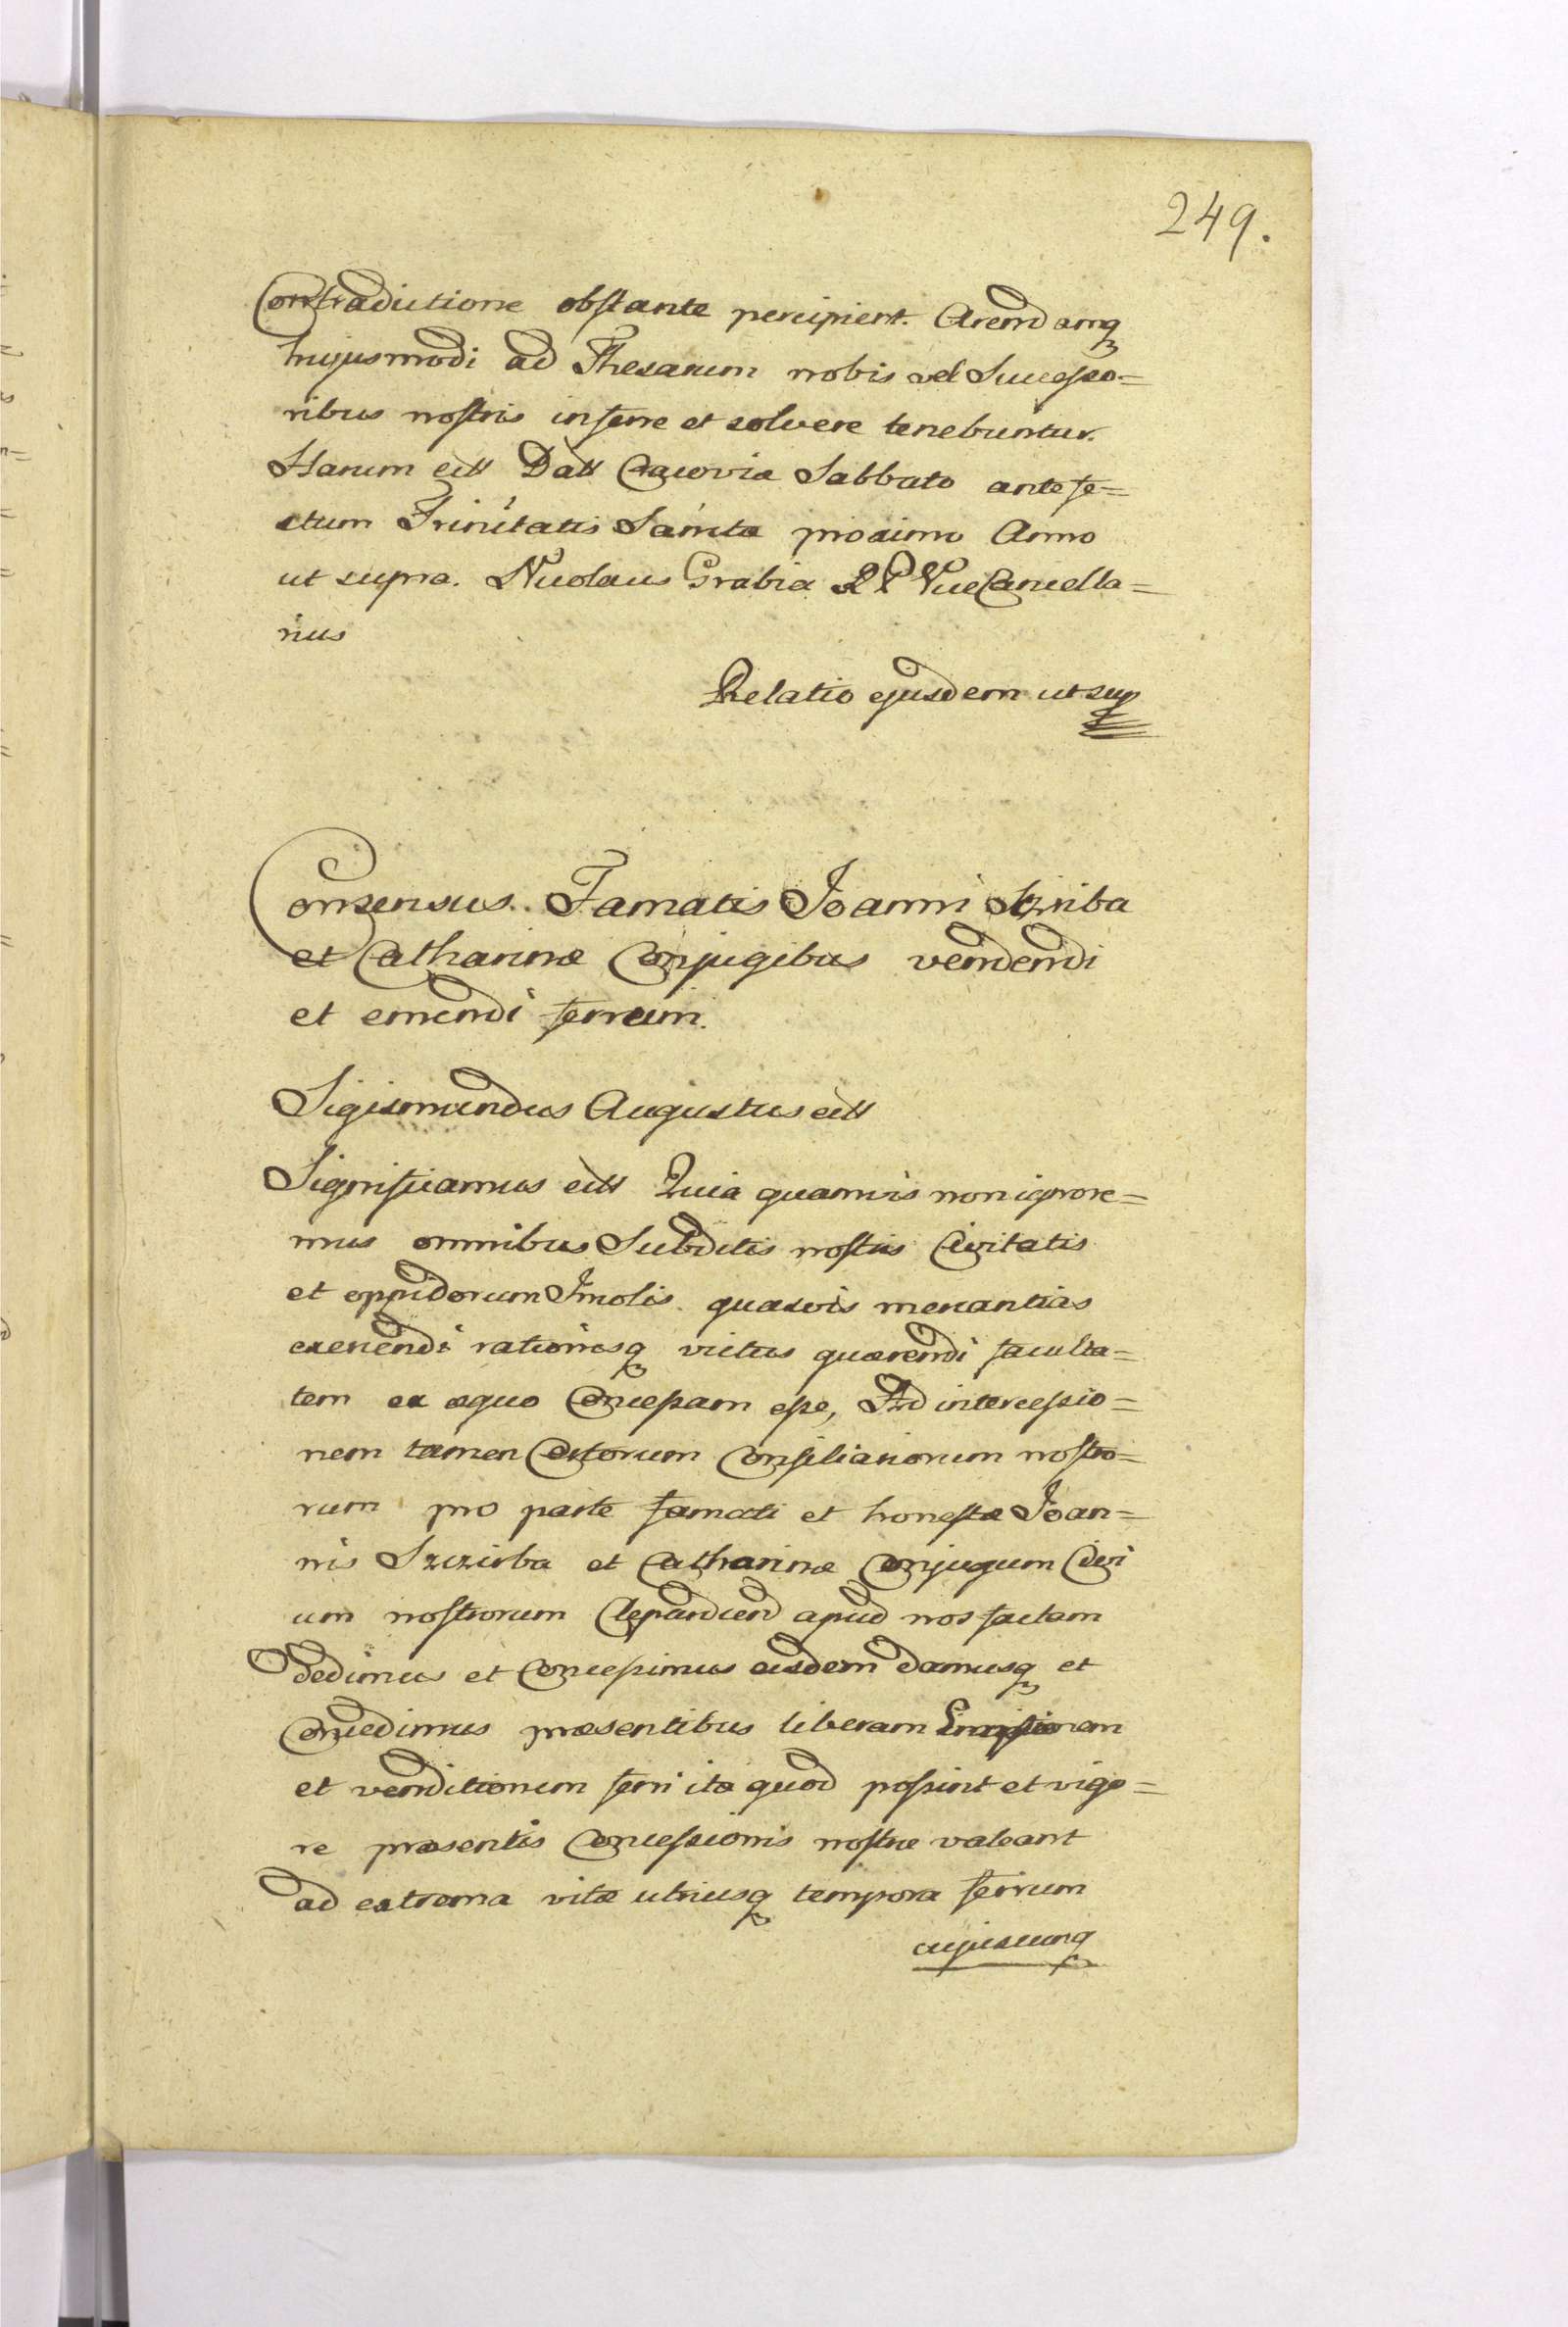 249.
Contradictione obstante percipient. Arendamq
hujusmodi ad Thesarum nobis vel Successo=
ribus nostris inferre et solvere tenebuntur.
Harum ett Datt Cracoviæ Sabbato ante fe=
stum Trinitatis Sanctæ proximo Anno
ut supra. Nicolaus Grabia R P ViceCancella=
rius
Relatio ejusdem ut sup
Consensus Famatis Joanni
et Catharinæ Conjugibus vendendi
et emendi ferrum.
Sigismundus Augustus ett
Significamus ett Quia quamvis non ignore=
mus omnibus Subditis nostris Civitatis
et oppidorum Incolis quasvis mercantias
exercendi rationesq victus quærendi faculta=
tem ex æquo Concessam esse, Ad intercessio=
nem tamen Certorum Consiliariorum nostro=
rum pro parte famati et honestæ Joan=
nis et Catharinæ Conjugum Civi
um nostrorum apud nos factam
dedimus et Concessimus eisdem damusq et
Concedimus præsentibus liberam Emptionem
et venditionem ferri ita quod possint et vigo=
re præsentis Concessionis nostræ valeant
ad extrema vitæ utriusq tempora ferrum
cujuscunq